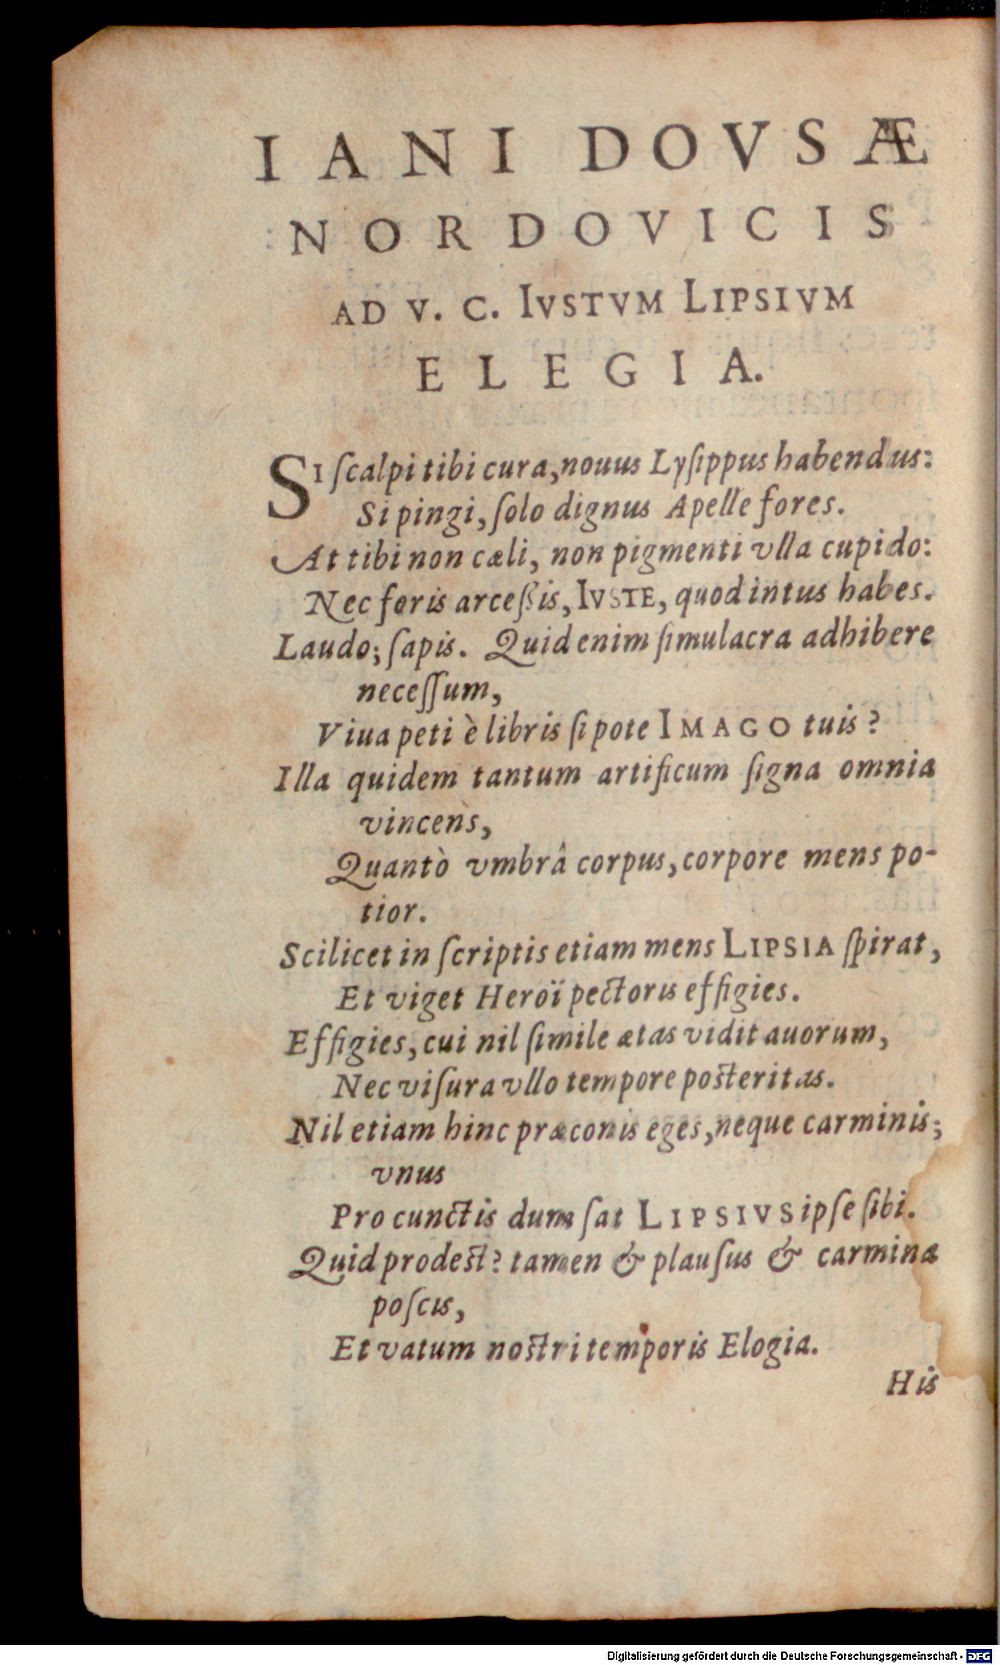 IANI DOVSÆ
NORDOVICIS
AD V. C. IVSTVM LIPSIVM
ELEGIA.
SI ſcalpi tibi cura, nouus Lyſippus habendus:
Si pingi, ſolo dignus Apelle fores.
At tibi non cæli, non pigmenti vlla cupido:
Nec foris arceßis, IVSTE, quod intus habes.
Laudo; ſapis. Quid enim ſimulacra adhibere
neceſſum,
Viua peti è libris ſi pote IMAGO tuis?
Illa quidem tantum artificum ſigna omnia
vincens,
Quantò vmbrâ corpus, corpore mens po-
tior.
Scilicet in ſcriptis etiam mens LIPSIA ſpirat,
Et viget Heroï pectoris effigies.
Effigies, cui nil ſimile ætas vidit auorum,
Nec viſura vllo tempore poſteritas.
Nil etiam hinc præconis eges, neque carminis;
vnus
Pro cunctis dum ſat LIPSIVS ipſe ſibi.
Quid prodeſt? tamen & plauſus & carmina
poſcis,
Et vatum noſtri temporis Elogia.
His
Digitalisierung gefördert durch die Deutsche Forschungsgemeinschaft - DFG